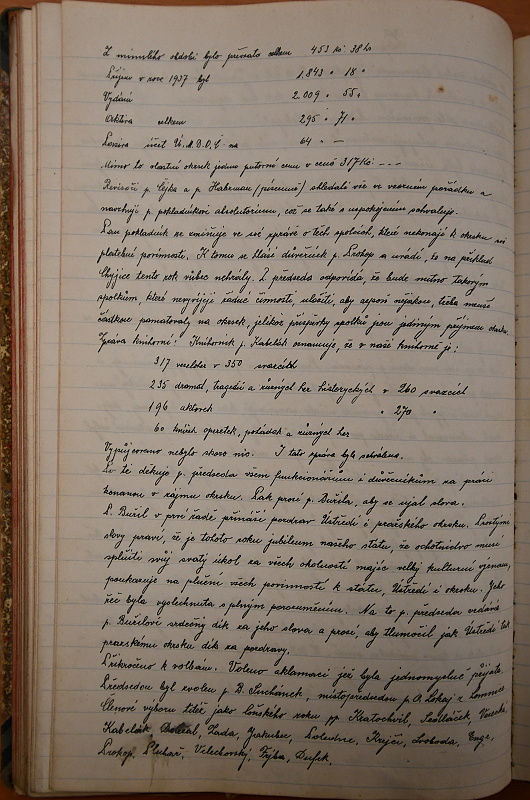 Z minulého období bylo převzato celkem 453 Kč 38 h
Příjem v roce 1937 byl 1.843 " 18 "
Vydání 2.009 " 55 "
Aktiva celkem 295 " 71 "
účet Ú.M.D.O.Č. na 64 " —
Mimo to vlastní okrsek jednu putovní cenu v ceně 317 Kč. - - -
Revisoři p. Cejka a p. Haberman (písemně) shledali vše ve vzorném pořádku a
navrhují p. pokladníkovi absolutorium, což se také s uspokojením schvaluje.
Pan pokladník se zmiňuje ve své zprávě o těch spolcích, které nekonají k okrsku své
platební povinnosti. K tomu se hlásí důvěrník p. Prokop a uvádí, že na příklad
tento rok vůbec nehrály. P. předseda odpovídá, že bude nutno takovým
spolkům, které nevyvíjejí žádné činnosti, uložiti, aby aspoň nějakou, třeba menší
částkou pamatovaly na okrsek, jelikož příspěvky spolků jsou jediným příjmem okrsku.
Zpráva knihovní: Knihovník p. Kabelák oznamuje, že v naší knihovně je:
317 veseloher v 350 svazcích
235 dramat, tragedií a různých her historických v 260 svazcích
196 aktovek " 270 "
60 knih operetek, pohádek a různých her
Vypůjčováno nebylo skoro nic. I tato zpráva byla schválena.
Po té děkuje p. předseda všem funkcionářům i důvěrníkům za práci
konanou v zájmu okrsku. Pak prosí p. Buřila, aby se ujal slova.
P. Buřil v prvé řadě přináší pozdrav Ústředí i pražského okrsku. Prostými
slovy praví, že je tohoto roku jubileum našeho státu, že ochotnictvo musí
splniti svůj svatý úkol za všech okolností majíc velký kulturní význam,
poukazuje na plnění všech povinností k státu, Ústředí i okrsku. Jeho
řeč byla vyslechnuta s plným porozuměním. Na to p. předseda vzdává
p. Buřilovi srdečný dík za jeho slova a prosí, aby tlumočil jak Ústředí tak
pražskému okrsku dík za pozdravy.
Přikročeno k volbám. Voleno aklamací jež byla jednomyslně přijata.
Předsedou byl zvolen p. B. Suchánek, místopředsedou p. A. Lokaj z Lomnice
Členové výboru titíž jako loňského roku pp. Kratochvíl, Sedláček,
Kabelák, Doležal, Zada, Jakubec, Poledne, Krejčí, Svoboda, Enge,
Prokop, Pluhař, Velechovský, Fejka,